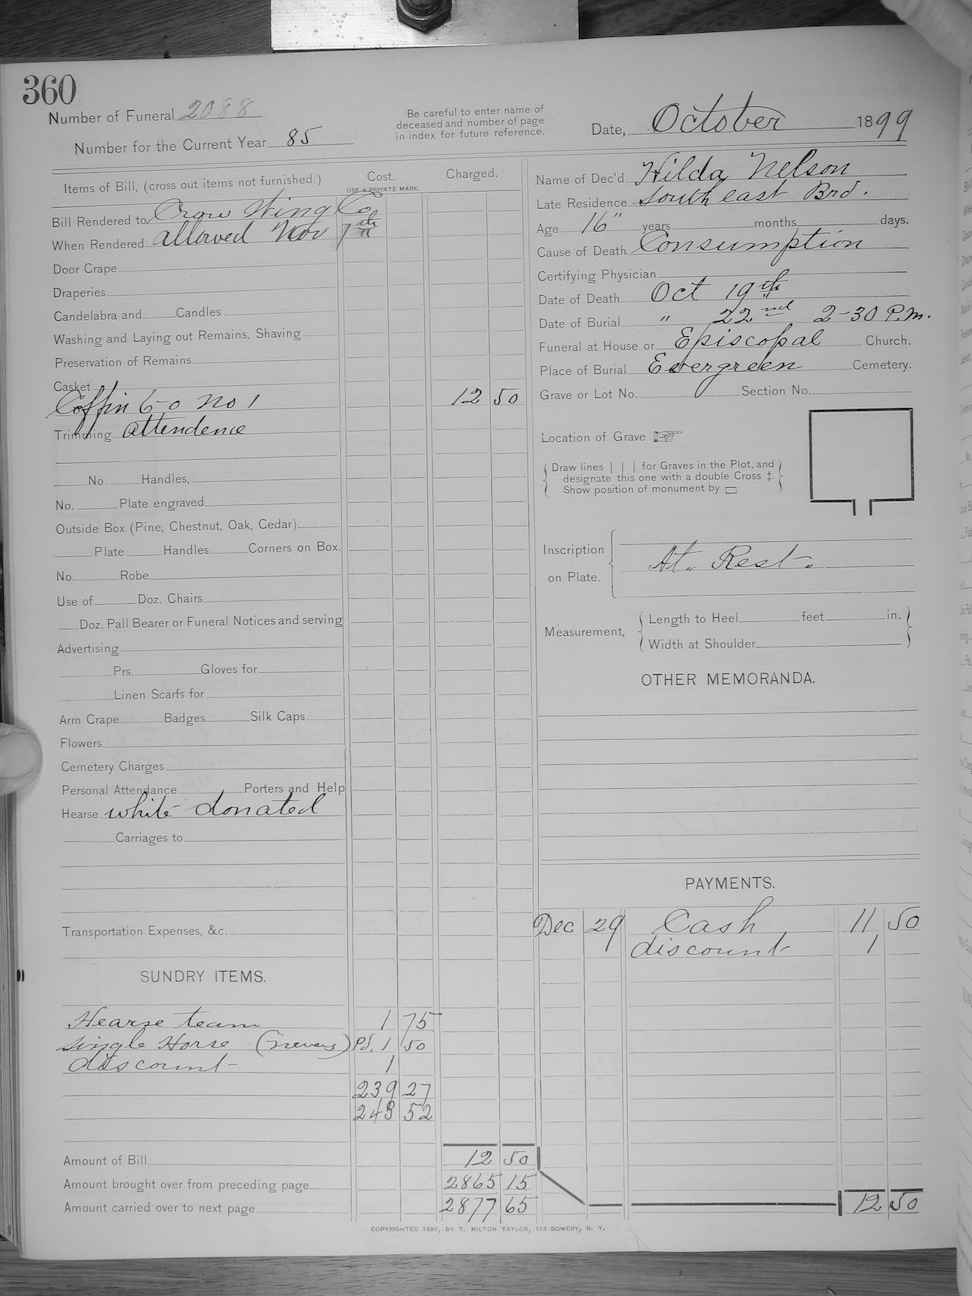 360
Number of Funeral 2088
Number for the Current Year 85
Be careful to enter name of
deceased and number of page
in index for future reference.
Date, October 1899
Items of Bill, (cross out items not furnished.)
Cost.
USE A PRIVATE MARK.
Charged.
Bill Rendered to Crow Wing Co.
When Rendered allowed Nov 7th
Door Crape
Draperies
Candelabra and Candles
Washing and Laying out Remains, Shaving
Preservation of Remains
Casket
Coffin 6-0 No 1 12 50
Trimming attendence
No. Handles,
No. Plate engraved
Outside Box (Pine, Chestnut, Oak, Cedar)
Plate Handles Corners on Box.
No. Robe
Use of Doz. Chairs
Doz. Pall Bearer or Funeral Notices and serving
Advertising
Prs. Gloves for
Linen Scarfs for
Arm Crape Badges Silk Caps
Flowers
Cemetery Charges
Personal Attendance Porters and Help
Hearse white donated
Carriages to
Transportation Expenses, &c.
SUNDRY ITEMS.
Hearse team 1 75
Single Horse (nevers) Pd. 1 50
discount 1
239 27
243 52
Amount of Bill 12 50
Amount brought over from preceding page 2865 15
Amount carried over to next page 2877 65
Name of Dec'd Hilda Nelson
Late Residence South east Brd.
Age 16" years months days.
Cause of Death Consumption
Certifying Physician
Date of Death Oct 19th
Date of Burial " 22nd 2-30 P.m.
Funeral at House or Episcopal Church.
Place of Burial Evergreen Cemetery.
Grave or Lot No. Section No.
Location of Grave
Draw lines | | | for Graves in the Plot, and
designate this one with a double Cross ‡.
Show position of monument by ▭
Inscription
on Plate.
At. Rest.
Measurement,
Length to Heel feet in.
Width at Shoulder
OTHER MEMORANDA.
PAYMENTS.
Dec 29 Cash 11 50
discount 1
12 50
COPYRIGHTED 1890, BY T. MILTON TAYLOR, 163 BOWERY, N. Y.